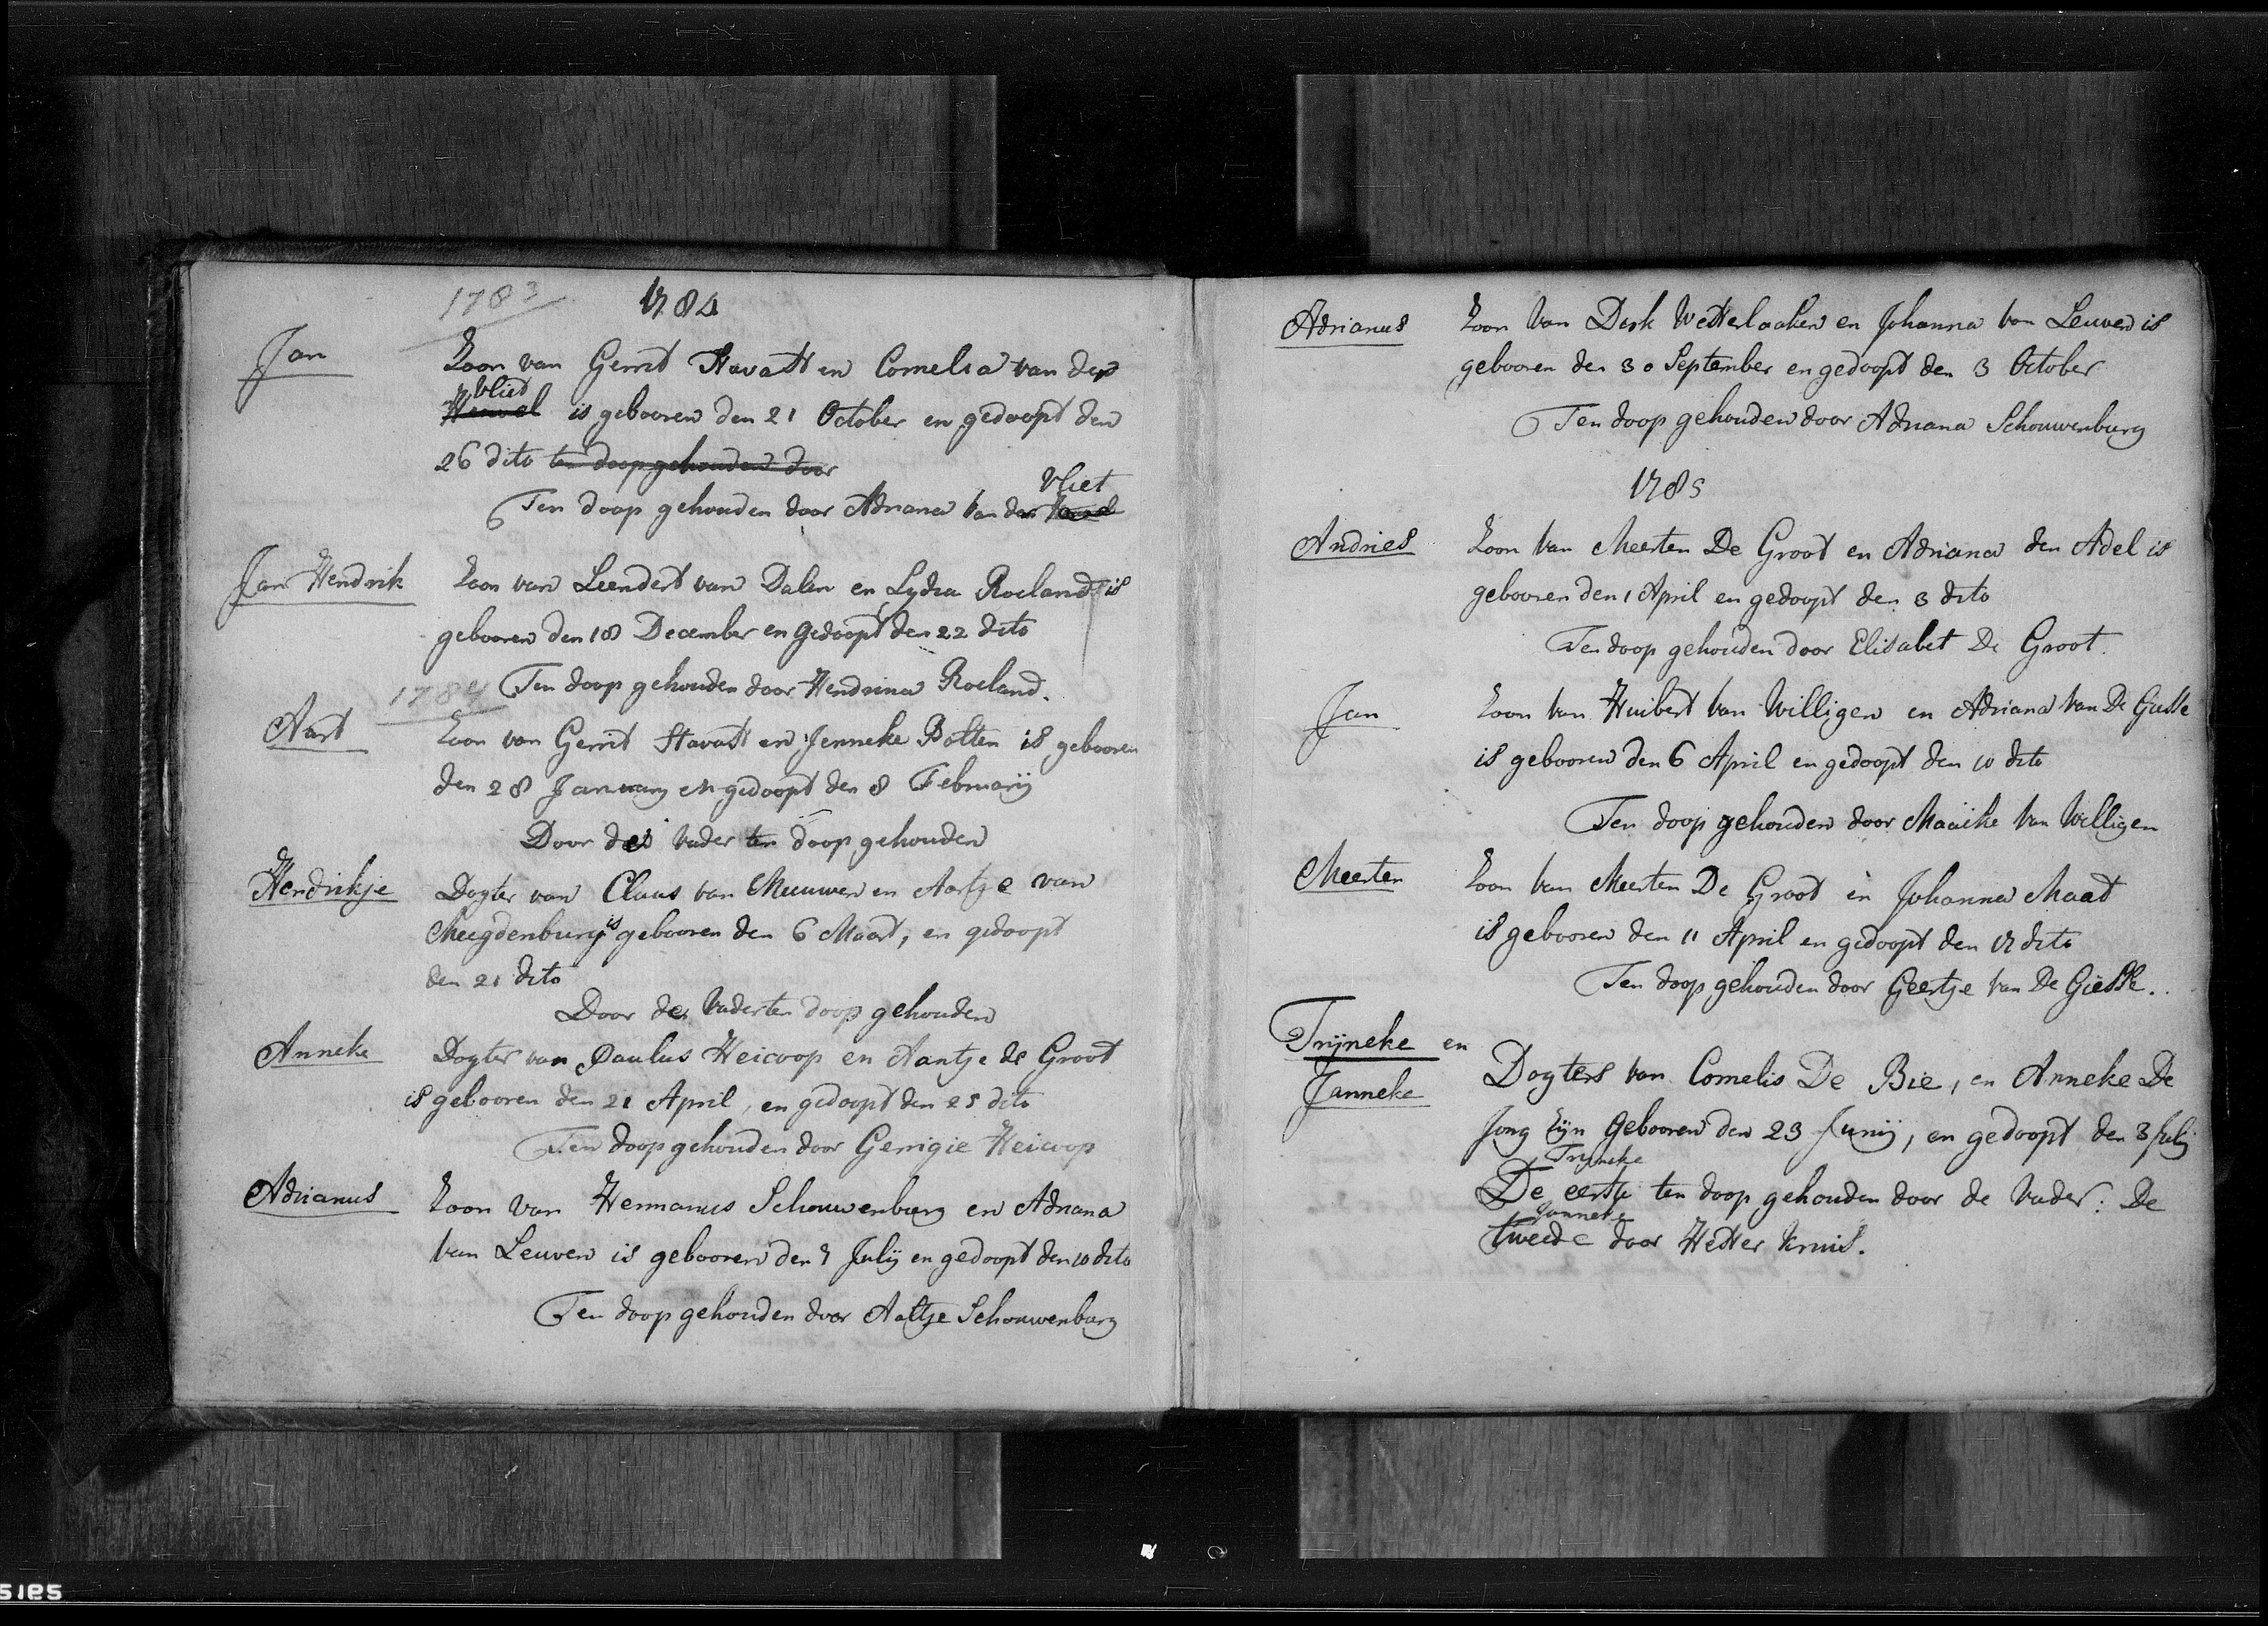 1783 1784
Jan Zoon van Gerrit Stravatt en Cornelia van der
Vliet
Heuvel is gebooren den 21 October en gedoopt den
26 dito ten doop gehouden door
Vliet
Ten doop gehouden door Adriana van der Heuvel
Jan Hendrik Zoon van Leendert van Dalen en Lydia Roeland is
gebooren den 18 December en gedoopt den 22 dito
Ten doop gehouden door Hendrina Roeland.
1784
Aart Zoon van Gerrit Stavast en Jenneke Botten is gebooren
den 28 January en gedoopt den 8 Februarij
Door de vader ten doop gehouden
Hendrikje Dogter van Claas van Meuwen en Aartje van
Meegdenburg is gebooren den 6 Maart, en gedoopt
den 21 dito
Door de Vader ten doop gehouden
Anneke Dogter van Paulus Heicoop en Aantje de Groot
is gebooren den 21 April, en gedoopt den 25 dito
Ten doop gehouden door Gerrigie Heicoop
Adrianus Zoon van Hermanus Schouwenburg en Adriana
van Leuven is gebooren den 7 Julij en gedoopt den 10 dito
Ten doop gehouden door Aaltje Schouwenburg
Adrianus Zoon van Dirk Wetterlaaken en Johanna van Leuven is
gebooren den 30 September en gedoopt den 3 October
Ten doop gehouden door Adriana Schouwenburg
1785
Andries Zoon van Meerten De Groot en Adriana den Adel is
gebooren den 1 April en gedoopt den 3 dito
Ten doop gehouden door Elisabet De Groot.
Jan Zoon van Huibert van Willigen en Adriana van De Giesse
is gebooren den 6 April en gedoopt den 10 dito
Ten doop gehouden door Maaike van Willigen
Meerten Zoon van Meerten De Groot en Johanna Maat
is gebooren den 11 April en gedoopt den 17 dito
Ten doop gehouden door Geertje van De Giesse.
Trijneke en
Janneke Dogters van Cornelis De Bie, en Anneke De
Jong zijn Gebooren den 23 Junij, en gedoopt den 3 Julij
Trijneke
De eerste ten doop gehouden door de Vader: De
Janneke
tweede door Hester Kruis.
5185